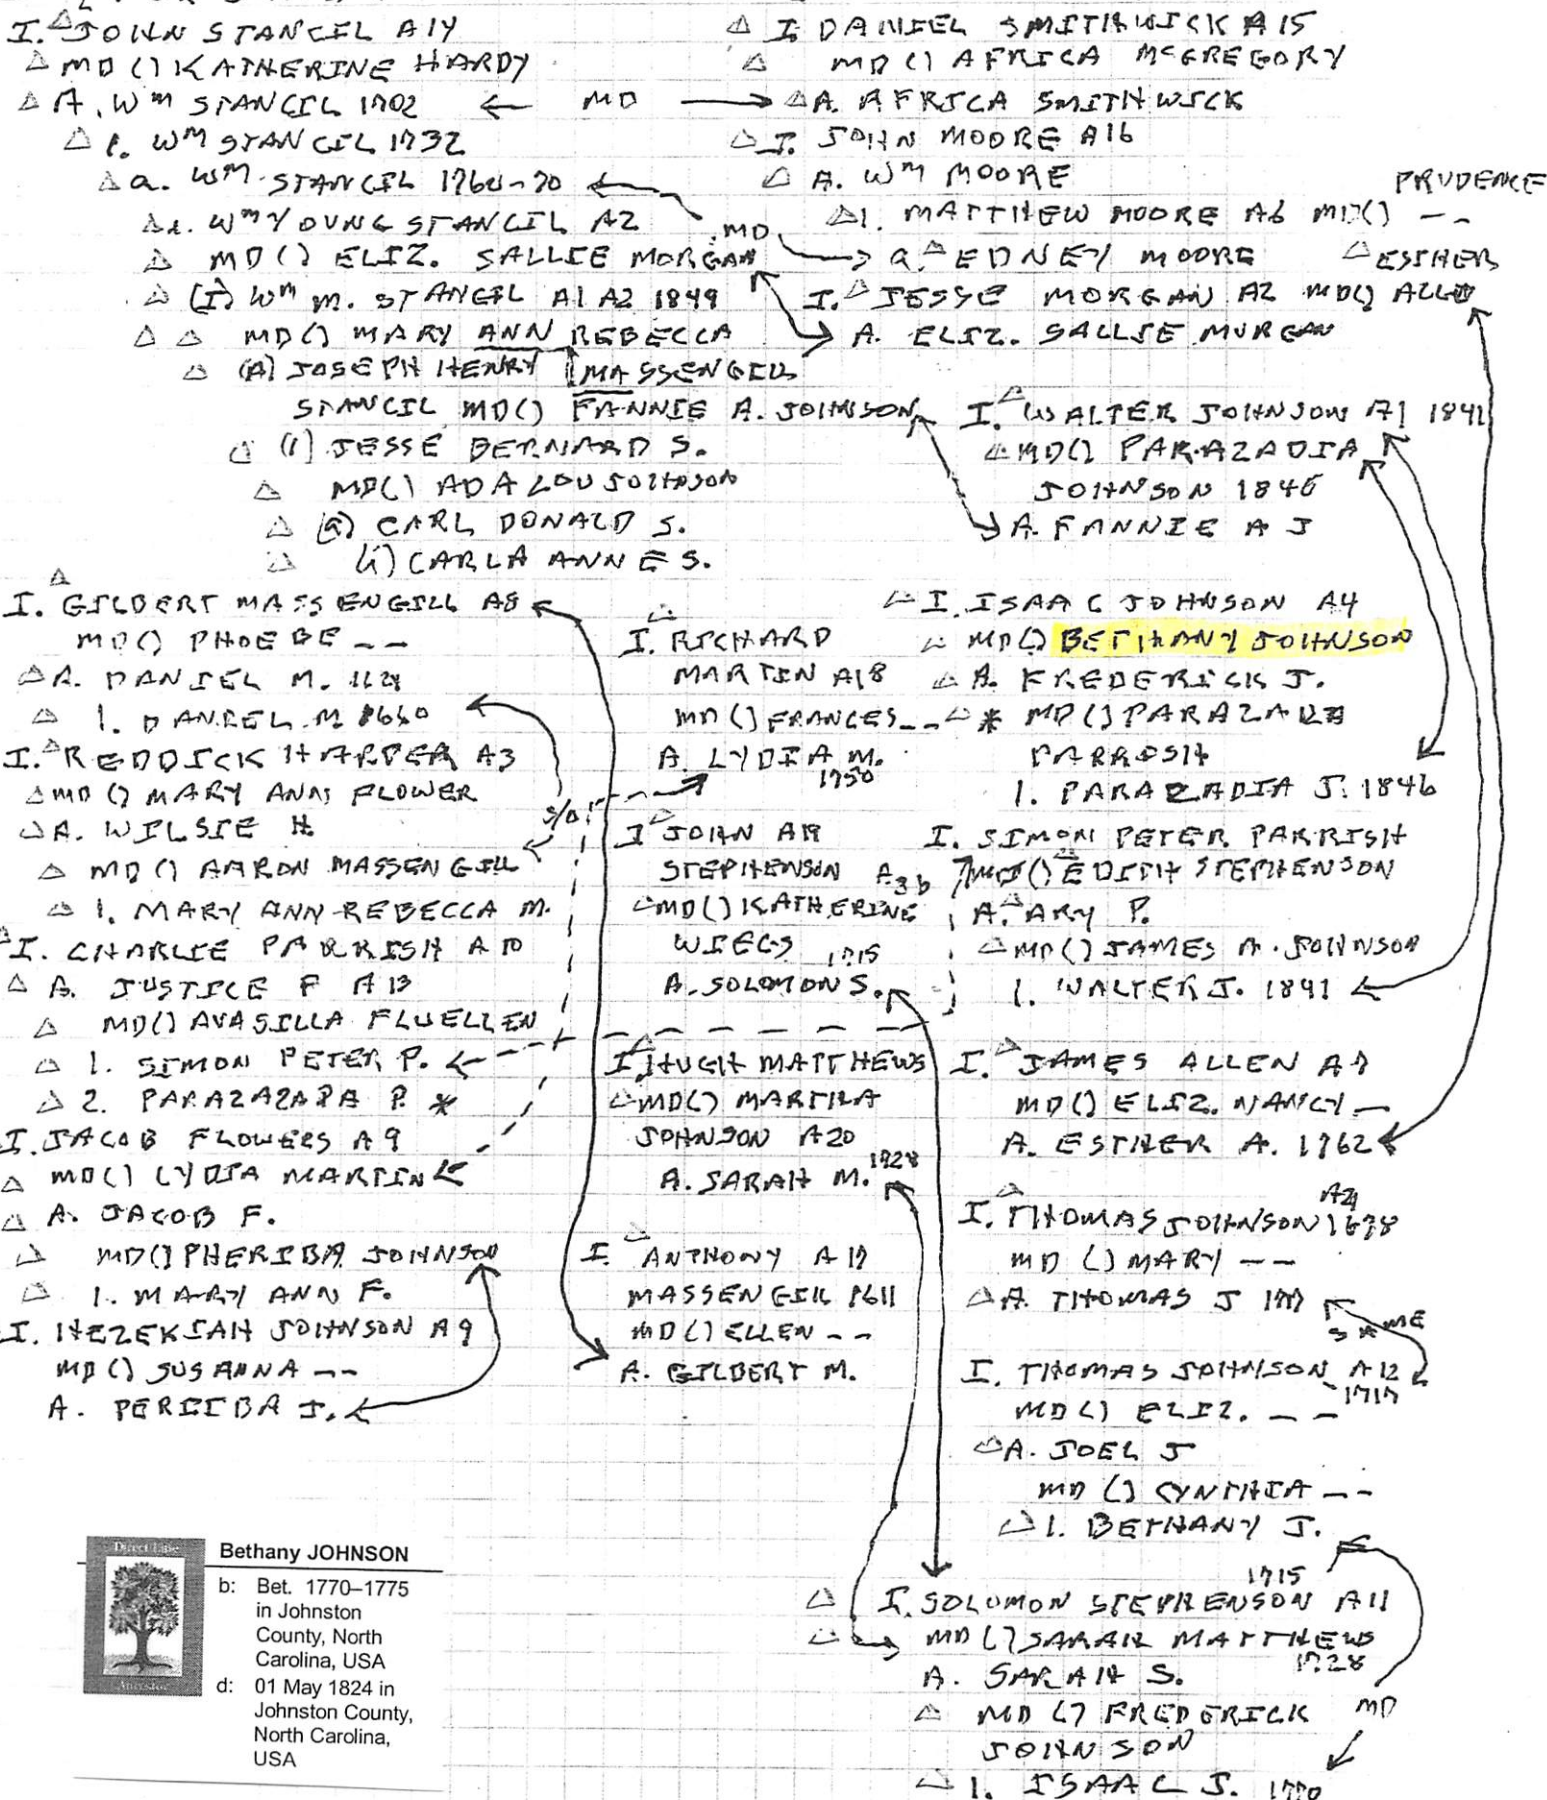 I. JOHN STANCIL A14
MD () KATHERINE HARDY
A. Wm STANCIL 1702 ← MD →
1. Wm STANCIL 1732
a. Wm STANCIL 1760-70
i. Wm YOUNG STANCIL A2
MD () ELIZ. SALLIE MORGAN
(I) Wm M. STANCIL A1 A2 1849
MD () MARY ANN REBECCA
MASSENGILL
(A) JOSEPH HENRY
STANCIL MD() FANNIE A. JOHNSON
(1) JESSE BERNARD S.
MD() ADA LOU JOHNSON
(a) CARL DONALD S.
(i) CARLA ANNE S.
I. DANIEL SMITHWICK A15
MD () AFRICA McGREGORY
A. AFRICA SMITHWICK
I. JOHN MOORE A16
A. Wm MOORE
PRUDENCE
1. MATTHEW MOORE A6 MD() --
MD
a. EDNEY MOORE
ESTHER
I. JESSE MORGAN A2 MD() ALLEN
A. ELIZ. SALLIE MORGAN
I. WALTER JOHNSON A1 1841
MD() PARAZADIA
JOHNSON 1846
A. FANNIE A J
I. GILBERT MASSENGILL A8
MD() PHOEBE --
A. DANIEL M.
1. DANIEL M
I. REDDICK HARPER A3
MD () MARY ANN FLOWER
A. WILSIE H.
MD () AARON MASSENGILL
S/O
1. MARY ANN REBECCA M.
I. CHARLIE PARRISH A10
A. JUSTICE P A13
MD() AVASILLA FLUELLEN
1. SIMON PETER P.
2. PARAZAZAPA P. *
I. JACOB FLOWERS A9
MD() LYDIA MARTIN
A. JACOB F.
MD() PHERIBA JOHNSON
1. MARY ANN F.
I. HEZEKIAH JOHNSON A9
MD () SUSANNA --
A. PERIEBA J.
I. RICHARD
MARTIN A18
MD () FRANCES --
A. LYDIA M.
1750
I JOHN A19
STEPHENSON A3b
MD() KATHERINE
WIEGS
1715
A. SOLOMON S.
I. HUGH MATTHEWS
MD() MARTHA
JOHNSON A20
1728
A. SARAH M.
I. ANTHONY A17
MASSENGILL 1611
MD() ELLEN --
A. GILBERT M.
I. ISAAC JOHNSON A4
MD() BETHANY JOHNSON
A. FREDERICK J.
* MD() PARAZADA
PARRISH
1. PARAZADIA J. 1846
I. SIMON PETER PARRISH
MD() EDITH STEPHENSON
A. ARY P.
MD() JAMES A. JOHNSON
1. WALTER J. 1841
I. JAMES ALLEN A7
MD() ELIZ. NANCY --
A. ESTHER A. 1762
A21
I. THOMAS JOHNSON 1678
MD () MARY --
A. THOMAS J 1717
SAME
I. THOMAS JOHNSON A12
1717
MD() ELIZ. --
A. JOEL J
MD () CYNTHIA --
1. BETHANY J.
1715
I. SOLOMON STEPHENSON A11
MD () SARAH MATTHEWS
1728
A. SARAH S.
MD () FREDERICK
JOHNSON
MD
1. ISAAC J. 1770
Direct Line
Ancestor
Bethany JOHNSON
b: Bet. 1770–1775
in Johnston
County, North
Carolina, USA
d: 01 May 1824 in
Johnston County,
North Carolina,
USA